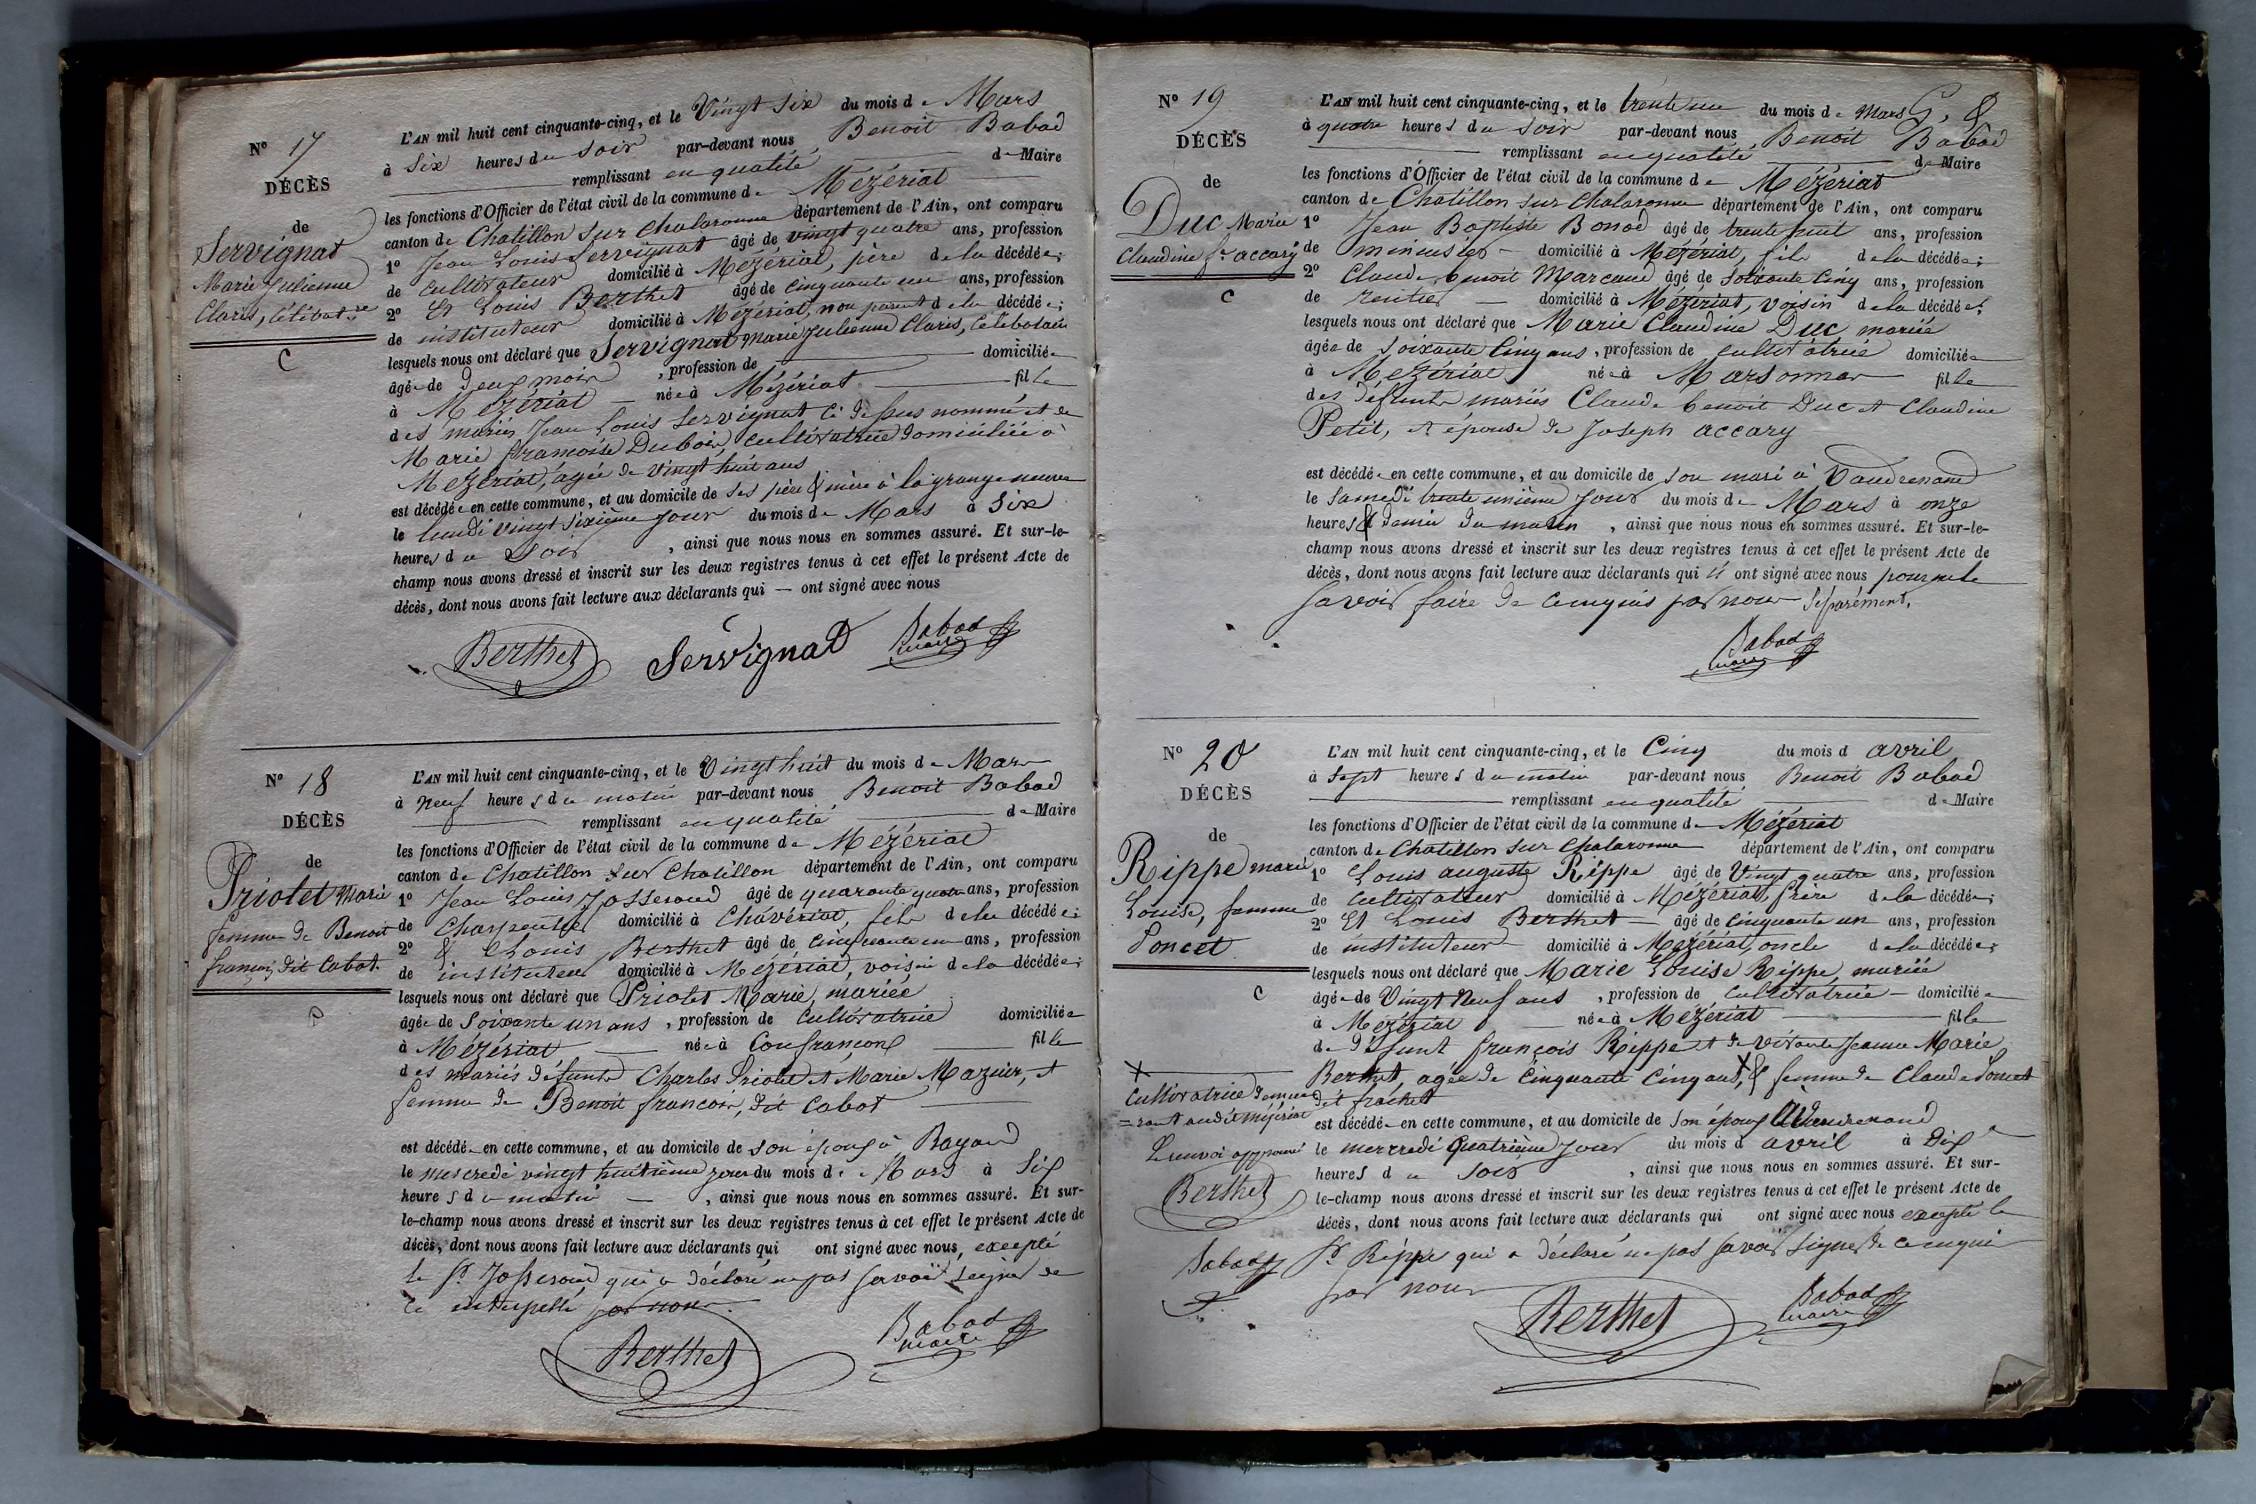 N° 17
DÉCÈS
de
Servignat
Marie Julienne
Claris, célibat.re
C
L'AN mil huit cent cinquante-cinq, et le Vingt Six du mois de Mars
à Six heures du Soir par-devant nous Benoit Babad
remplissant en qualité de Maire
les fonctions d'Officier de l'état civil de la commune de Mézériat
canton de Chatillon sur Chalaronne département de l'Ain, ont comparu
1° Jean Louis Servignat âgé de vingt quatre ans, profession
de cultivateur domicilié à Mézériat, père de la décédée;
2° Et Louis Berthet âgé de cinquante un ans, profession
de instituteur domicilié à Mézériat, non parent de la décédée;
lesquels nous ont déclaré que Servignat Marie Julienne Claris, célibataire
âgée de deux mois, profession de domiciliée
à Mézériat née à Mézériat fille
des mariés Jean Louis Servignat ci dessus nommé et de
Marie françoise Dubois, cultivatrice domiciliée à
Mézériat, agée de vingt huit ans
est décédée en cette commune, et au domicile de ses père & mère à la grange neuve
le lundi vingt sixième jour du mois de Mars à Six
heures du Soir, ainsi que nous nous en sommes assuré. Et sur-le-
champ nous avons dressé et inscrit sur les deux registres tenus à cet effet le présent Acte de
décès, dont nous avons fait lecture aux déclarants qui — ont signé avec nous
Berthet Servignat Babad
maire
N° 18
DÉCÈS
de
Priolet Marie
femme de Benoit
françois, dit Cabot.
L'AN mil huit cent cinquante-cinq, et le Vingt huit du mois de Mars
à neuf heures du matin par-devant nous Benoit Babad
remplissant en qualité de Maire
les fonctions d'Officier de l'état civil de la commune de Mézériat
canton de Chatillon sur Chatillon département de l'Ain, ont comparu
1° Jean Louis Josserand âgé de quarante quatre ans, profession
de Charpentier domicilié à Chavériat, fils de la décédée;
2° & Louis Berthet âgé de cinquante un ans, profession
de instituteur domicilié à Mézériat, voisin de la décédée;
lesquels nous ont déclaré que Priolet Marie, mariée
âgée de Soixante un ans, profession de Cultivatrice domiciliée
à Mézériat née à Confrançon fille
des mariés défunts Charles Priolet et Marie Mazuir, et
femme de Benoit françois, dit Cabot
est décédée en cette commune, et au domicile de son époux à Bayard
le mercredi vingt huitième jour du mois de Mars à Six
heures du matin, ainsi que nous nous en sommes assuré. Et sur-
le-champ nous avons dressé et inscrit sur les deux registres tenus à cet effet le présent Acte de
décès, dont nous avons fait lecture aux déclarants qui ont signé avec nous, excepté
le Sr. Josserand qui a déclaré ne pas savoir signer de
ce interpellé par nous.
Berthet Babad
maire
N° 19
DÉCÈS
de
Duc Marie
Claudine fe. accary
C
L'AN mil huit cent cinquante-cinq, et le trente un du mois de Mars
à quatre heures du Soir par-devant nous Benoit Babad
remplissant en qualité de Maire
les fonctions d'Officier de l'état civil de la commune de Mézériat
canton de Chatillon sur Chalaronne département de l'Ain, ont comparu
1° Jean Baptiste Bonod âgé de trente huit ans, profession
de menuisier domicilié à Mézériat, fils de la décédée;
2° Claude Benoit Marcaud âgé de soixante cinq ans, profession
de rentier domicilié à Mézériat, voisin de la décédée;
lesquels nous ont déclaré que Marie Claudine Duc mariée
âgée de soixante cinq ans, profession de cultivatrice domiciliée
à Mézériat née à Marsonnas fille
des défunts mariés Claude benoit Duc et Claudine
Petit, et épouse de Joseph accary
est décédée en cette commune, et au domicile de son mari à Vandrenand
le Samedi trente unième jour du mois de Mars à onze
heures & demie du matin, ainsi que nous nous en sommes assuré. Et sur-le-
champ nous avons dressé et inscrit sur les deux registres tenus à cet effet le présent Acte de
décès, dont nous avons fait lecture aux déclarants qui n'ont signé avec nous pour ne le
savoir faire de ce enquis par nous séparément.
Babad
maire
N° 20
DÉCÈS
de
Rippe marie
Louise, femme
Poncet
C
L'AN mil huit cent cinquante-cinq, et le Cinq du mois d avril
à Sept heures du matin par-devant nous Benoit Babad
remplissant en qualité de Maire
les fonctions d'Officier de l'état civil de la commune de Mézériat
canton de Chatillon sur Chalaronne département de l'Ain, ont comparu
1° Louis auguste Rippe âgé de Vingt quatre ans, profession
de cultivateur domicilié à Mézériat, frère de la décédée;
2° Et Louis Berthet âgé de cinquante un ans, profession
de instituteur domicilié à Mézériat, oncle de la décédée;
lesquels nous ont déclaré que Marie Louise Rippe, mariée
âgée de Vingt Neuf ans, profession de Cultivatrice domiciliée
à Mézériat née à Mézériat fille
de défunt françois Rippe et de vivante Jeanne Marie
Berthet, agée de Cinquante Cinq ans, X & femme de Claude Poncet
dit frachet
est décédée en cette commune, et au domicile de son époux à Vandrenand
le mercredi quatrième jour du mois d avril à Dix
heures du Soir, ainsi que nous nous en sommes assuré. Et sur-
le-champ nous avons dressé et inscrit sur les deux registres tenus à cet effet le présent Acte de
décès, dont nous avons fait lecture aux déclarants qui ont signé avec nous excepté le
Sr. Rippe qui a déclaré ne pas savoir signer de ce enquis
par nous
Berthet Babad
maire
X
Cultivatrice demeu
=rant audit Mézériat
Renvoi approuvé
Berthet
Babad